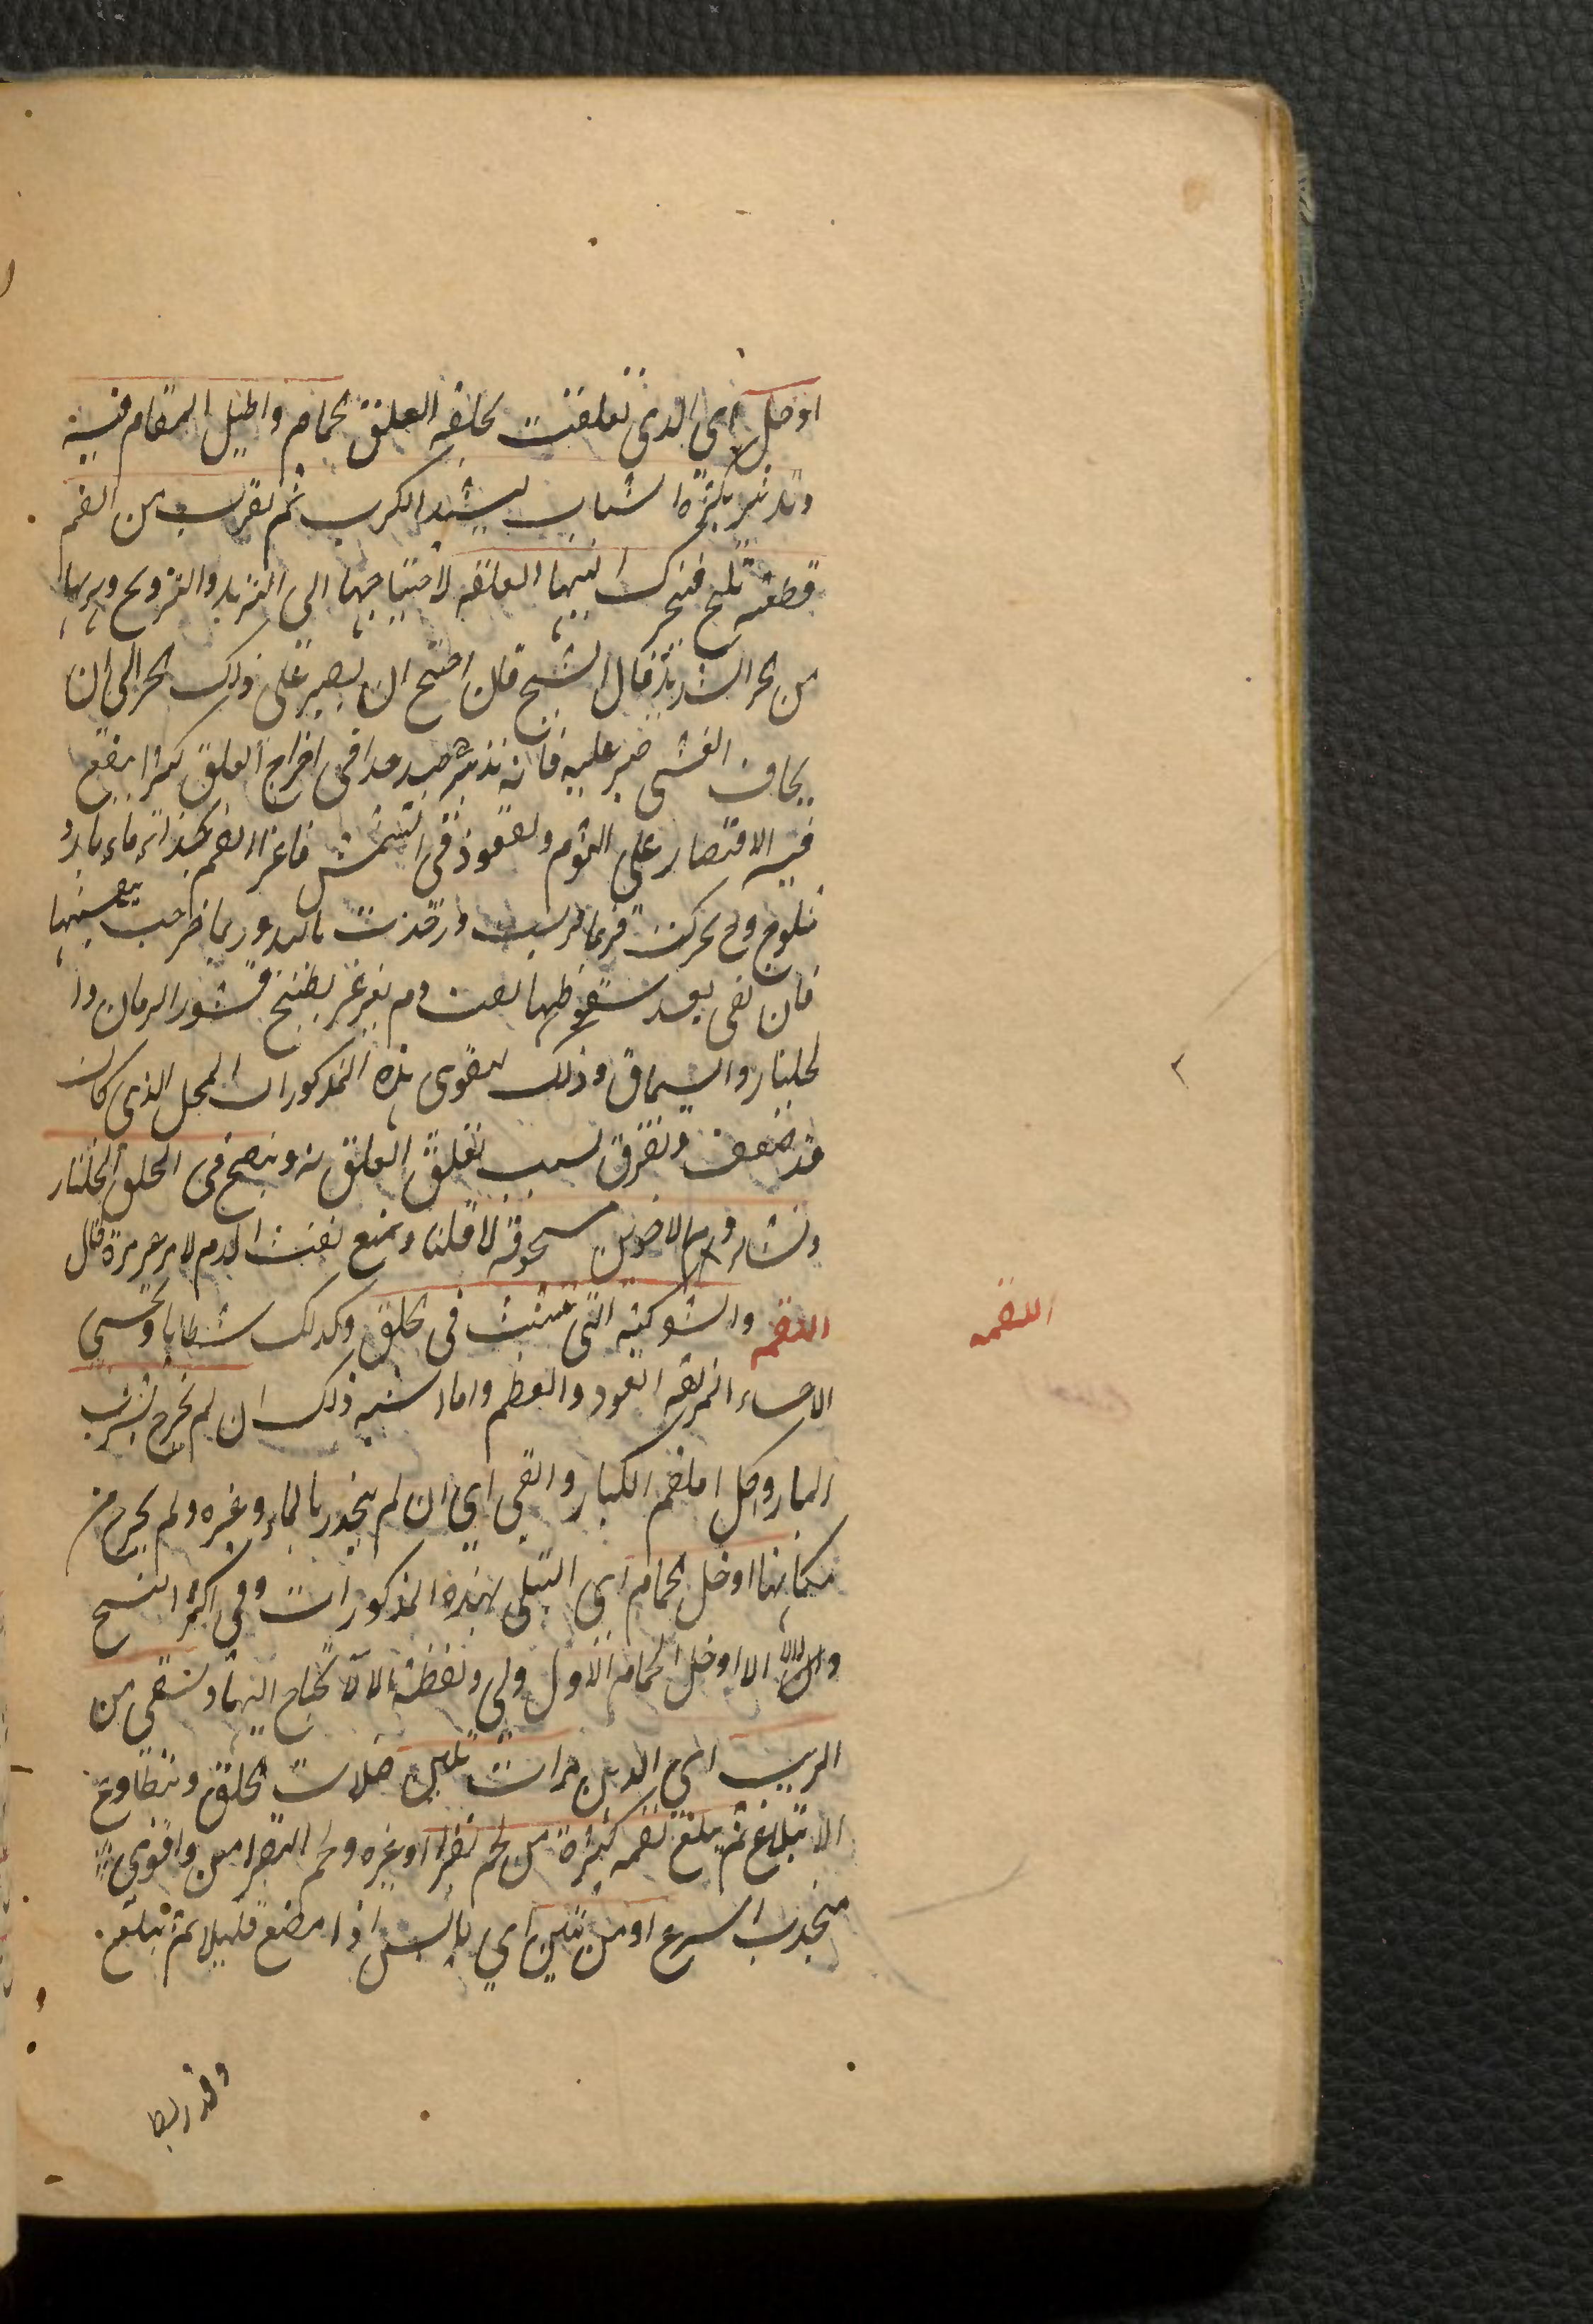 ادخل اى الذى تعلقت بحلقه العلق الحمام واطيل المقام فيه
وتدثر بكثرة الثياب ليشتد الكرب ثم يقرب من الفم
قطعة ثلج فتحرك اليها العلقة لاحتياجها الى التبريد والترويح وهربها
من الحر الشديد قال الشيخ فان احتيج ان يصبر على ذلك الحر الى ان
يخاف الغشى صبر عليه فانه تدبير جيد جدا فى اخراج العلق كثيرا ينفع
فيه الاقتصار على الثوم والقعود فى الشمس فاغرا الفم بحذاء ماء بارد
مثلوج وح تحركت فربما قربت و باليد وربما خرجت بنفسها
فان بقى بعد سقوطها نفث دم يغرغر بطبيخ قشور الرمان وا
لجلنار والسماق وذلك ليقوى هذه المذكورات المحل الذى كان
قد ضعف وتفرق بسبب تعلق العلق به وينفخ فى الحلق الجلنار
ونشاء ودم الاخوين مسحوقة لما قلنا ويمنع نفث الدم لا مر غير مرة قال
اللقمه والشوكة التى تنشب فى الحلق وكذلك شظايا وتحسى
الاحساء المزلقة العود والعظم واما اشبه ذلك ان لم يخرج بشرب
الماء واكل اللقم الكبار والقى اى ان لم ينحدر بالماء وغيره ولم يخرج من
مكانها ادخل الحمام اى المبتلى بهذه المذكورات وفى اكثر النسخ
والا ادخل الحمام الاول ولى ولفظة الا لا يحتاج اليها ويسقى من
الربب اى الدبس مرات ليلين عضلات الحلق وتطاوع
الابتلاع ثم يبلع لقمه كبيرة من لحم بقر او غيره ولحم البقر امتن واقوى
منجذب اسرع او من تين اى يابس اذا مضغ قليلا ثم تبلع
اللقمه